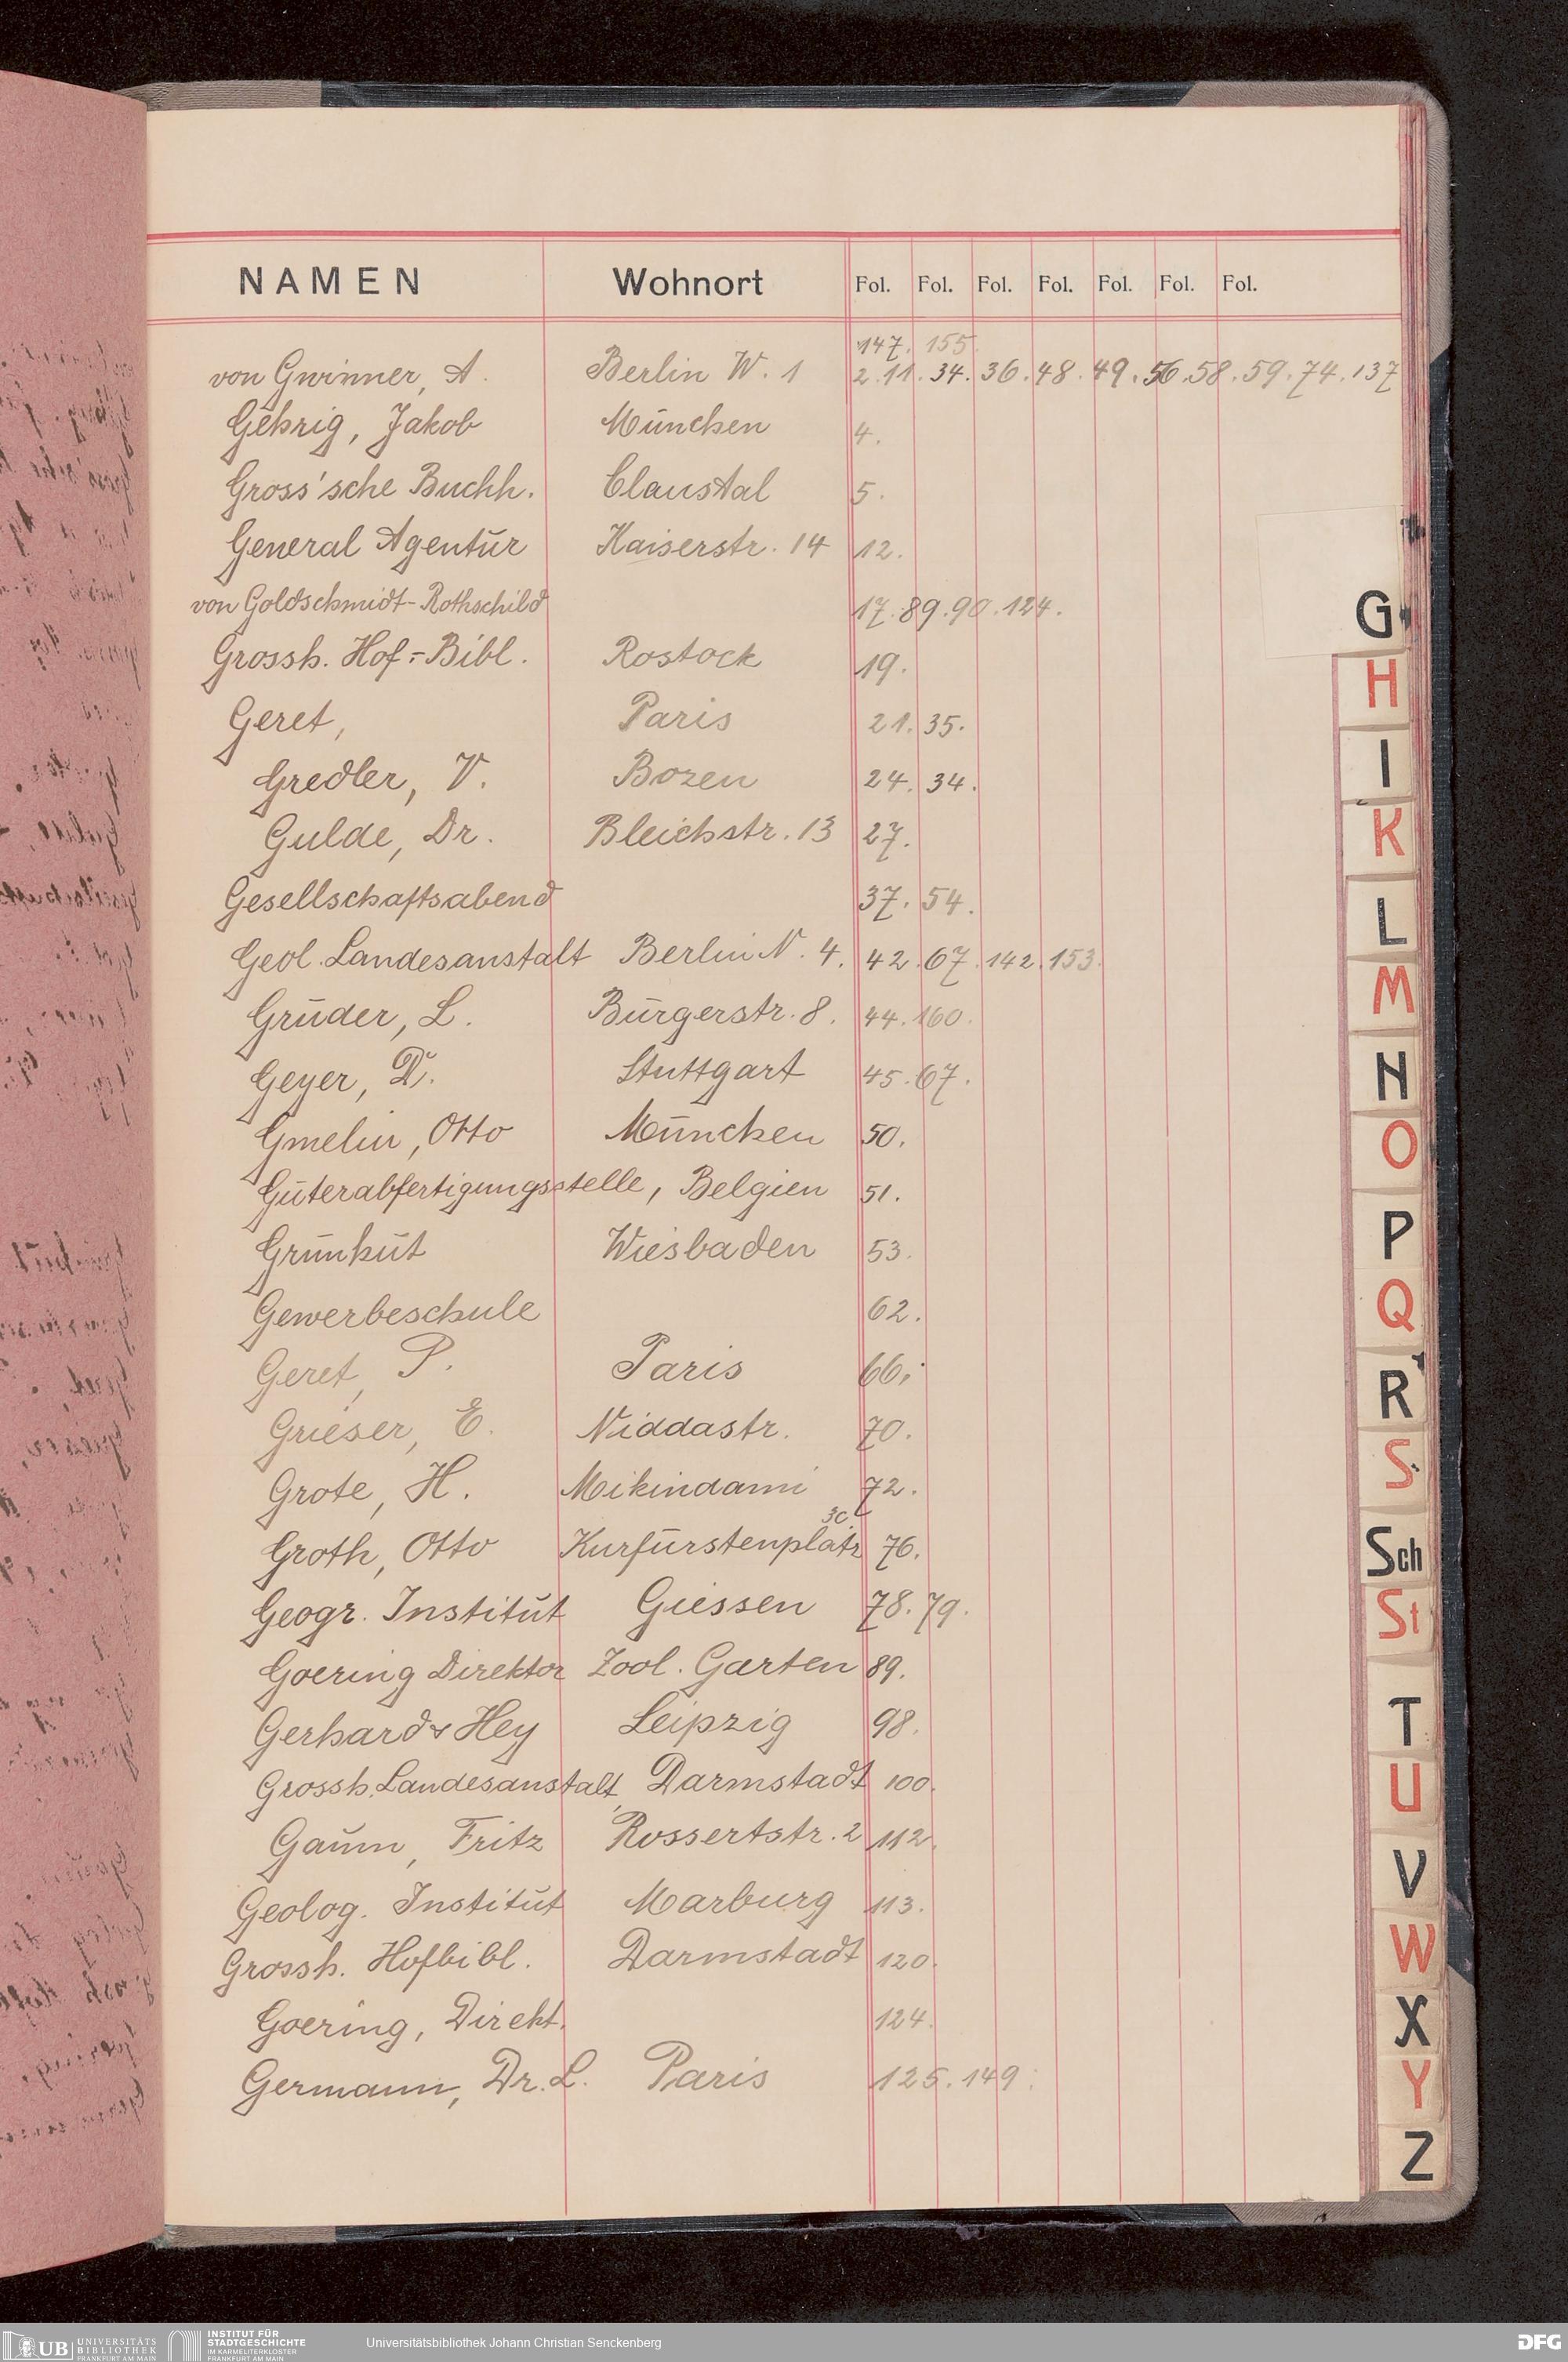 NAMEN Wohnort Fol. Fol. Fol. Fol. Fol. Fol. Fol.
147. 155.
von Gwinner, A. Berlin W. 1 2.11.34.36.48.49.56.58.59.74.137
Gehrig, Jakob München 4.
Gross'sche Buchh. Claustal 5.
General Agentur Kaiserstr. 14 12.
von Goldschmidt-Rothschild 17.89.90.124.
Grossh. Hof-Bibl. Rostock 19.
Geret, Paris 21.35.
Gredler, V. Bozen 24.34.
Gulde, Dr. Bleichstr. 13 27.
Gesellschaftsabend 37.54.
Geol. Landesanstalt Berlin N. 4. 42.67.142.153.
Grüder, L. Bürgerstr. 8. 44.160.
Geyer, D. Stuttgart 45.67.
Gmelin, Otto München 50.
Güterabfertigungsstelle, Belgien 51.
Grünhut Wiesbaden 53.
Gewerbeschule 62.
Geret, P. Paris 66.
Grieser, E. Niddastr. 70.
Grote, H. Mikindami 72.
30
Groth, Otto Kurfürstenplatz 76.
Geogr. Institut Giessen 78.79.
Goering Direktor Zool. Garten 89.
Gerhard & Hey Leipzig 98.
Grossh. Landesanstalt, Darmstadt 100.
Gaum, Fritz Rossertstr. 2 112.
Geolog. Institut Marburg 113.
Grossh. Hofbibl. Darmstadt 120.
Goering, Direkt. 124.
Germann, Dr. L. Paris 125.149.
G
H
I
K
L
M
N
O
P
Q
R
S
Sch
St
T
U
V
W
X
Y
Z
UB UNIVERSITÄTS BIBLIOTHEK FRANKFURT AM MAIN
INSTITUT FÜR STADTGESCHICHTE IM KARMELITERKLOSTER FRANKFURT AM MAIN
Universitätsbibliothek Johann Christian Senckenberg
DFG